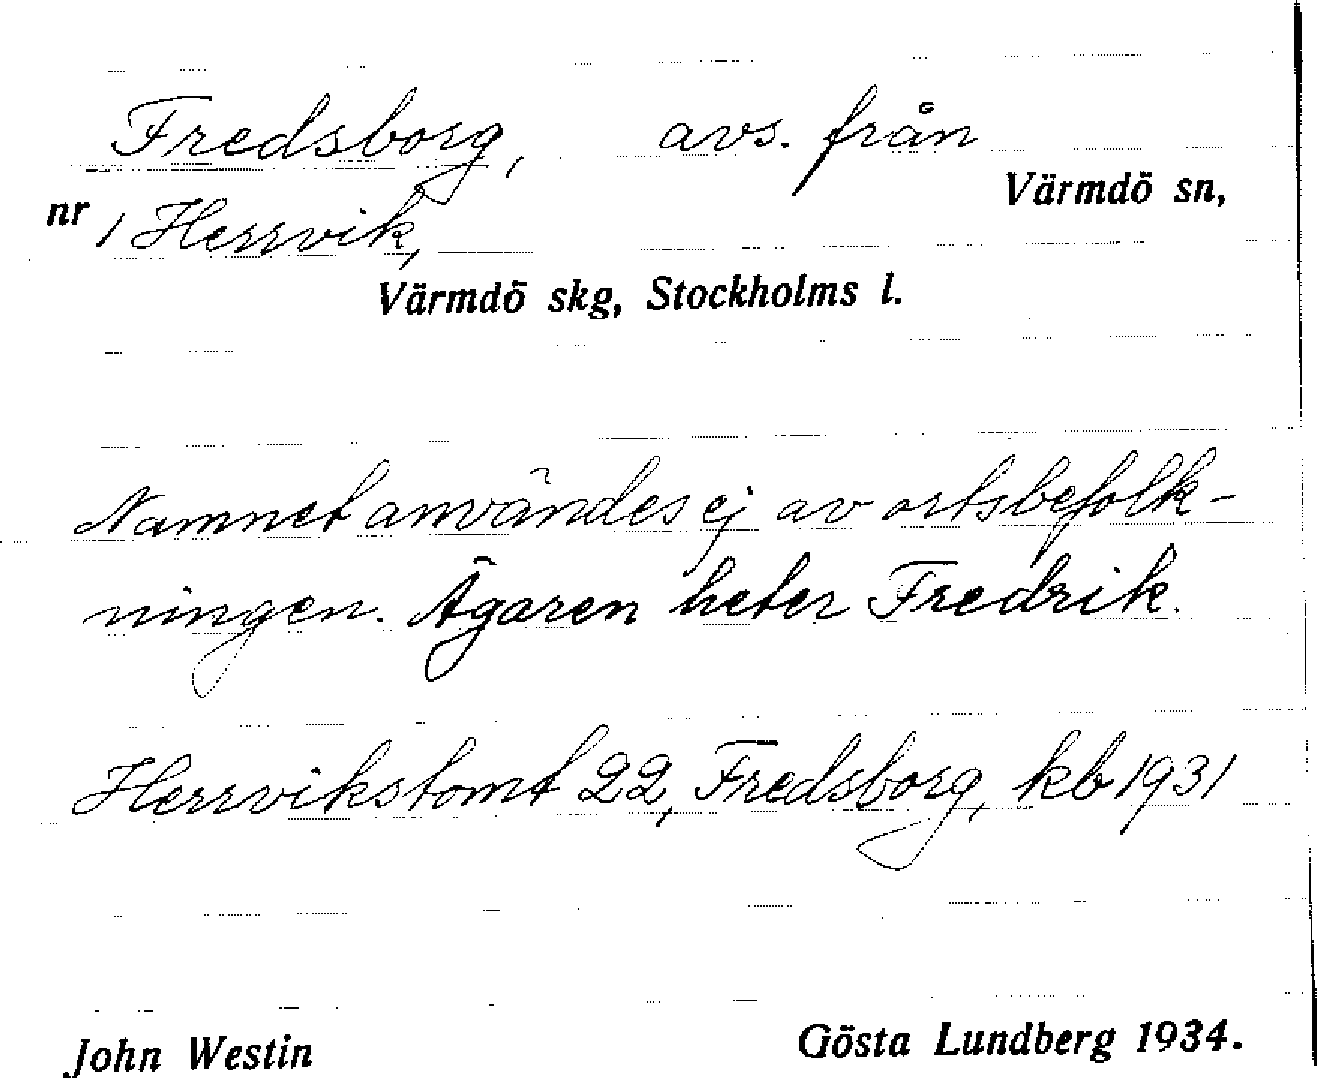 Fredsborg, avs. från
Värmdö sn,
nr 1 Herrvik,
Värmdö skg, Stockholms l.
Namnet användes ej av ortsbefolk-
ningen. Ägaren heter Fredrik.
Herrvikstomt 22, Fredsborg, kb 1931
John Westin Gösta Lundberg 1934.